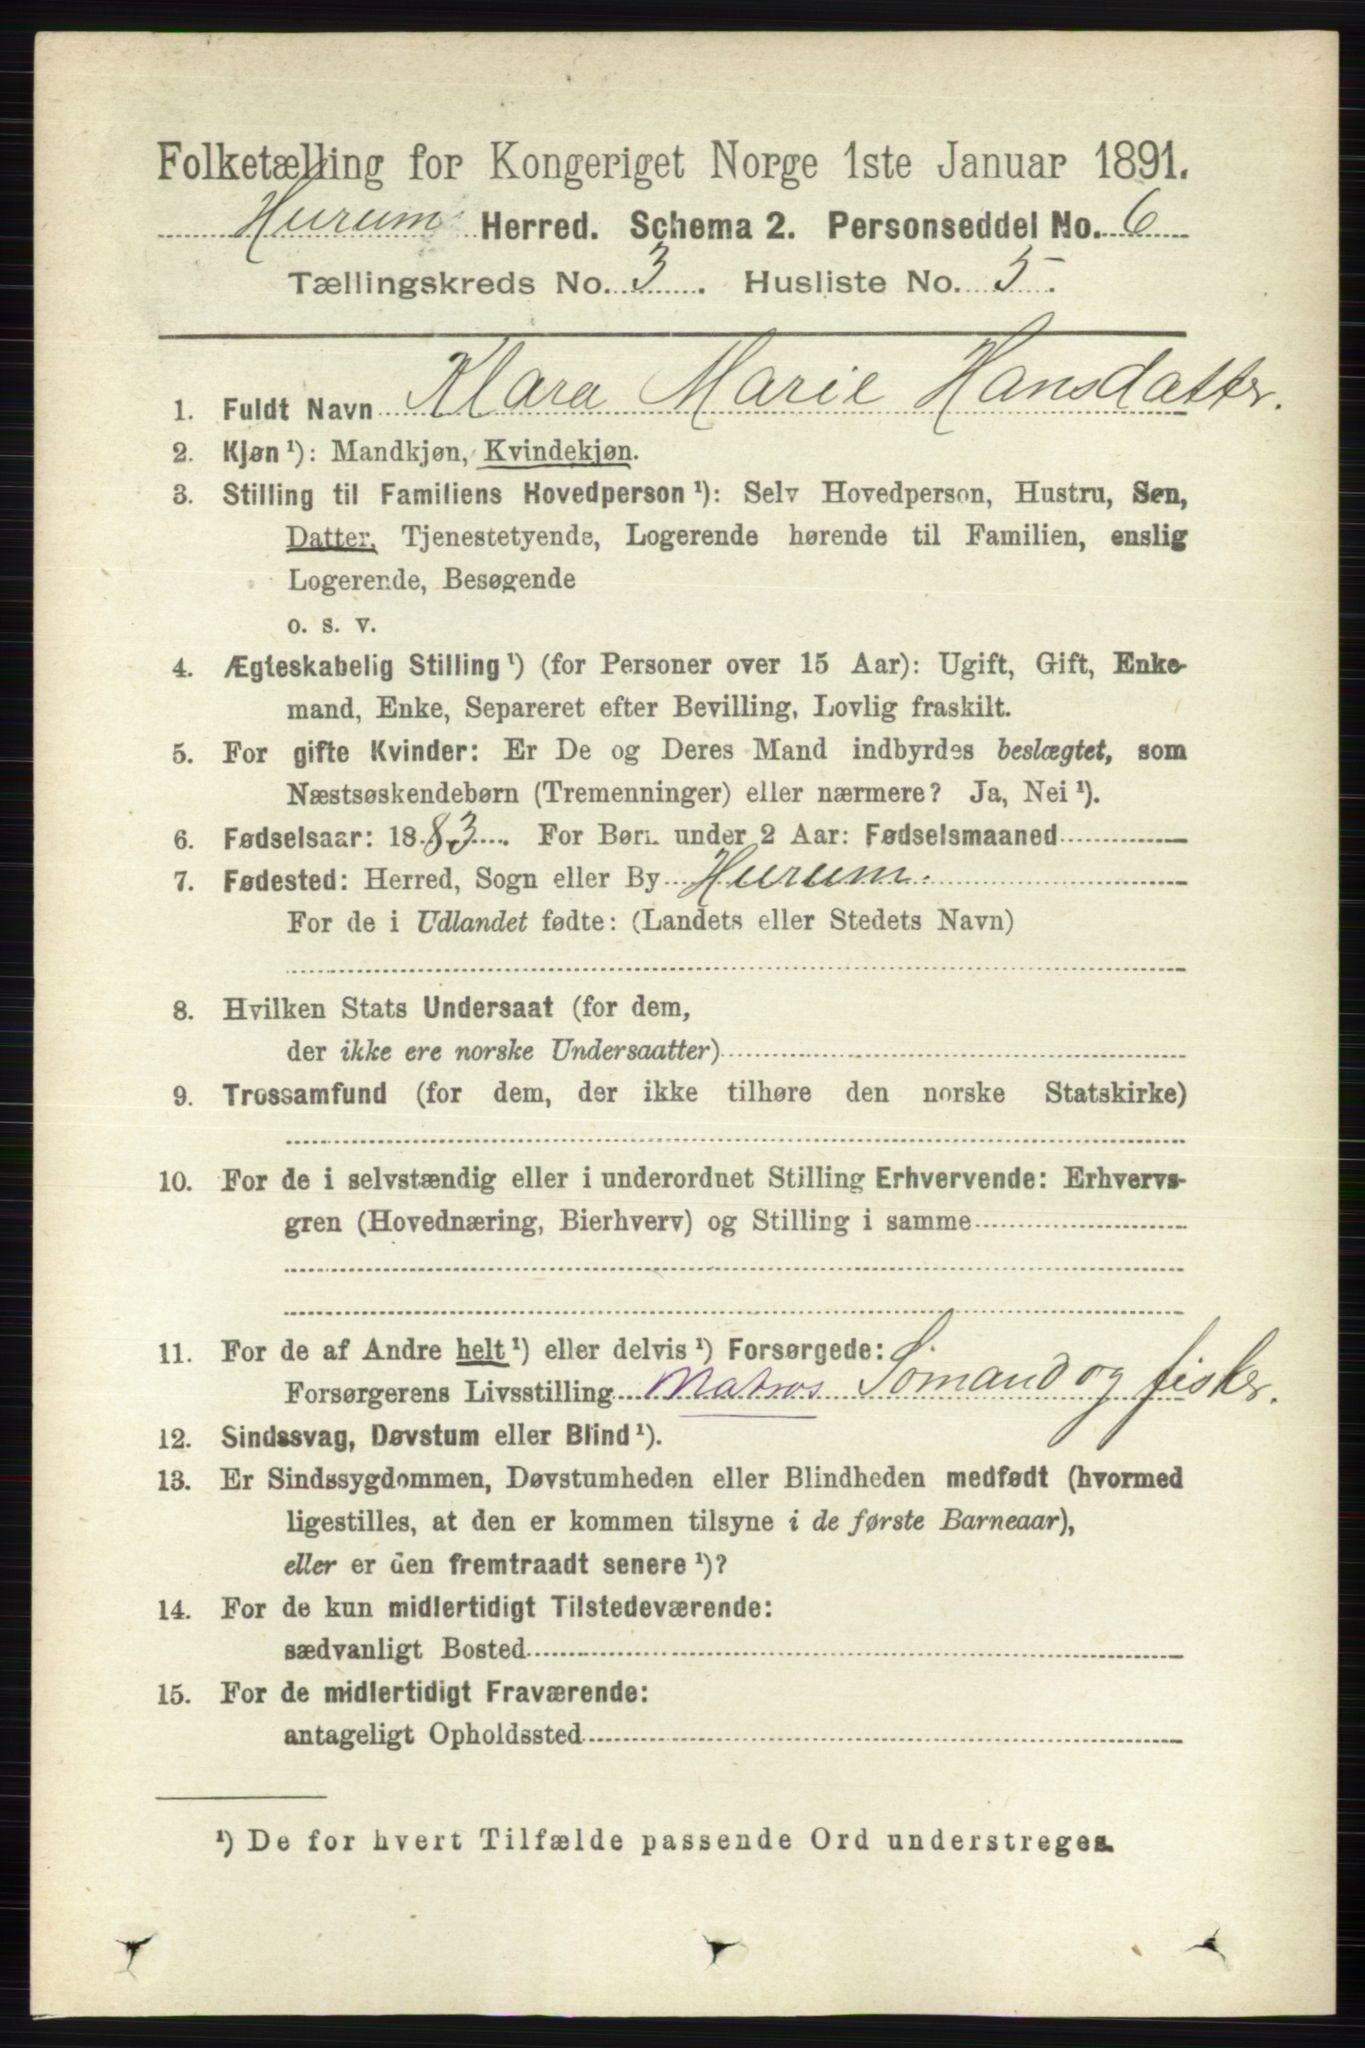 Folketælling for Kongeriget Norge 1ste Januar 1891.
Hurum Herred. Schema 2. Personseddel No. 6
Tællingskreds No. 3. Husliste No. 5.
1. Fuldt Navn Klara Marie Hansdatter.
2. Kjøn ¹): Mandkjøn, Kvindekjøn.
3. Stilling til Familiens Hovedperson ¹): Selv Hovedperson, Hustru, Søn,
Datter, Tjenestetyende, Logerende hørende til Familien, enslig
Logerende, Besøgende
o. s. v.
4. Ægteskabelig Stilling ¹) (for Personer over 15 Aar): Ugift, Gift, Enke-
mand, Enke, Separeret efter Bevilling, Lovlig fraskilt.
5. For gifte Kvinder: Er De og Deres Mand indbyrdes beslægtet, som
Næstsøskendebørn (Tremenninger) eller nærmere? Ja, Nei ¹).
6. Fødselsaar: 1883. For Børn under 2 Aar: Fødselsmaaned
7. Fødested: Herred, Sogn eller By Hurum.
For de i Udlandet fødte: (Landets eller Stedets Navn)
8. Hvilken Stats Undersaat (for dem,
der ikke ere norske Undersaatter)
9. Trossamfund (for dem, der ikke tilhøre den norske Statskirke)
10. For de i selvstændig eller i underordnet Stilling Erhvervende: Erhvervs-
gren (Hovednæring, Bierhverv) og Stilling i samme
11. For de af Andre helt ¹) eller delvis ¹) Forsørgede:
Forsørgerens Livsstilling Matros Sømand og fisker.
12. Sindssvag, Døvstum eller Blind ¹).
13. Er Sindssygdommen, Døvstumheden eller Blindheden medfødt (hvormed
ligestilles, at den er kommen tilsyne i de første Barneaar),
eller er den fremtraadt senere ¹)?
14. For de kun midlertidigt Tilstedeværende:
sædvanligt Bosted
15. For de midlertidigt Fraværende:
antageligt Opholdssted
¹) De for hvert Tilfælde passende Ord understreges.